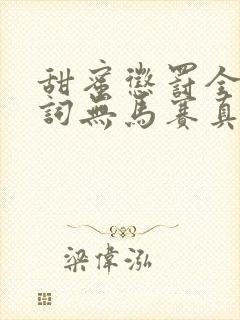 甜蜜懲罰全
詞無馬賽真
梁偉泓